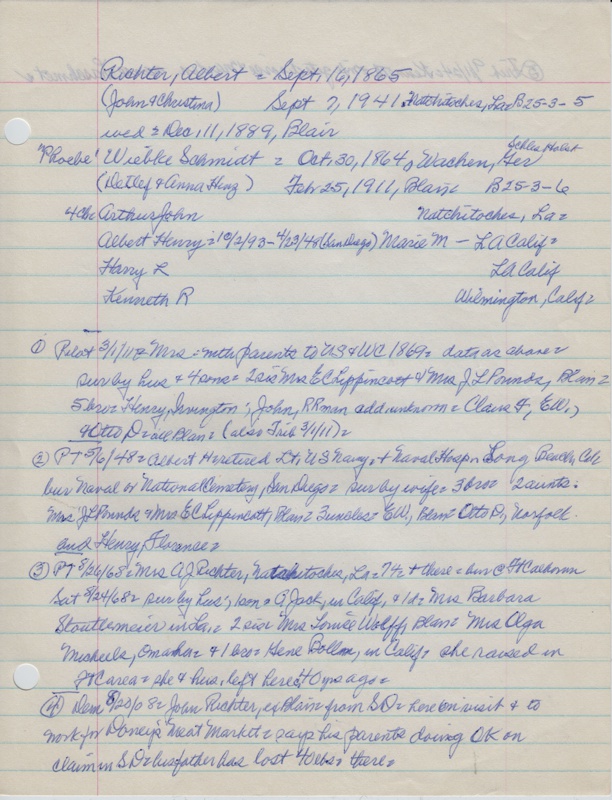 Richter, Albert = Sept. 16, 1865
(John & Christina) Sept 7, 1941 Natchitoches, La B25-3-5
wed = Dec. 11, 1889, Blair
"Phoebe" Wiebke Schmidt = Oct. 30, 1864, Wacken, Schles Holst Ger
(Detlef & Anna Hinz) Feb 25, 1911, Blair B25-3-6
4ch: Arthur John Natchitoches, La =
Albert Henry = 10/2/93 - 4/23/48 (San Diego) Marie M - LA Calif =
Harry L LA Calif
Kenneth R Wilmington, Calif =
① Pilot 3/1/11 = Mrs = with parents to US & WC 1869 = data as above =
sur by hus & 4 sons = 2 sis Mrs EC Lippincott & Mrs J L Pounds, Blair =
5 bro = Henry, Irvington; John, RRman add unknown = Claus &, EW,
& Otto D all Blair = (also Trib 3/1/11) =
② PT 5/6/48 = Albert H retired Lt, US Navy, + Naval Hosp Long Beach, Cal
bur Naval or National Cemetery, San Diego = sur by wife = 3 bro = 2 aunts:
Mrs J L Pounds & Mrs EC Lippincott, Blair = 3 uncles = EW, Blair Otto D, Norfolk
and Henry, Florence =
③ PT 8/26/68 = Mrs A J Richter, Natchitoches, La = 74 = + there = bur @ Ft Calhoun
Sat 8/24/68 = sur by hus', 1 son = A Jack, in Calif, & 1 d = Mrs Barbara
in La, = 2 sis Mrs Louise Wolff, Blair Mrs Olga
Michaels, Omaha = & 1 bro = Gene Bolln, in Calif = she raised in
Ft C area = she & hus, left here, 40 yrs ago =
④ Dem = John Richter, ex Blair from SD = here on visit & to
work for Meat Market = says his parents doing OK on
claim in SD = his father has lost 40 lbs = there =